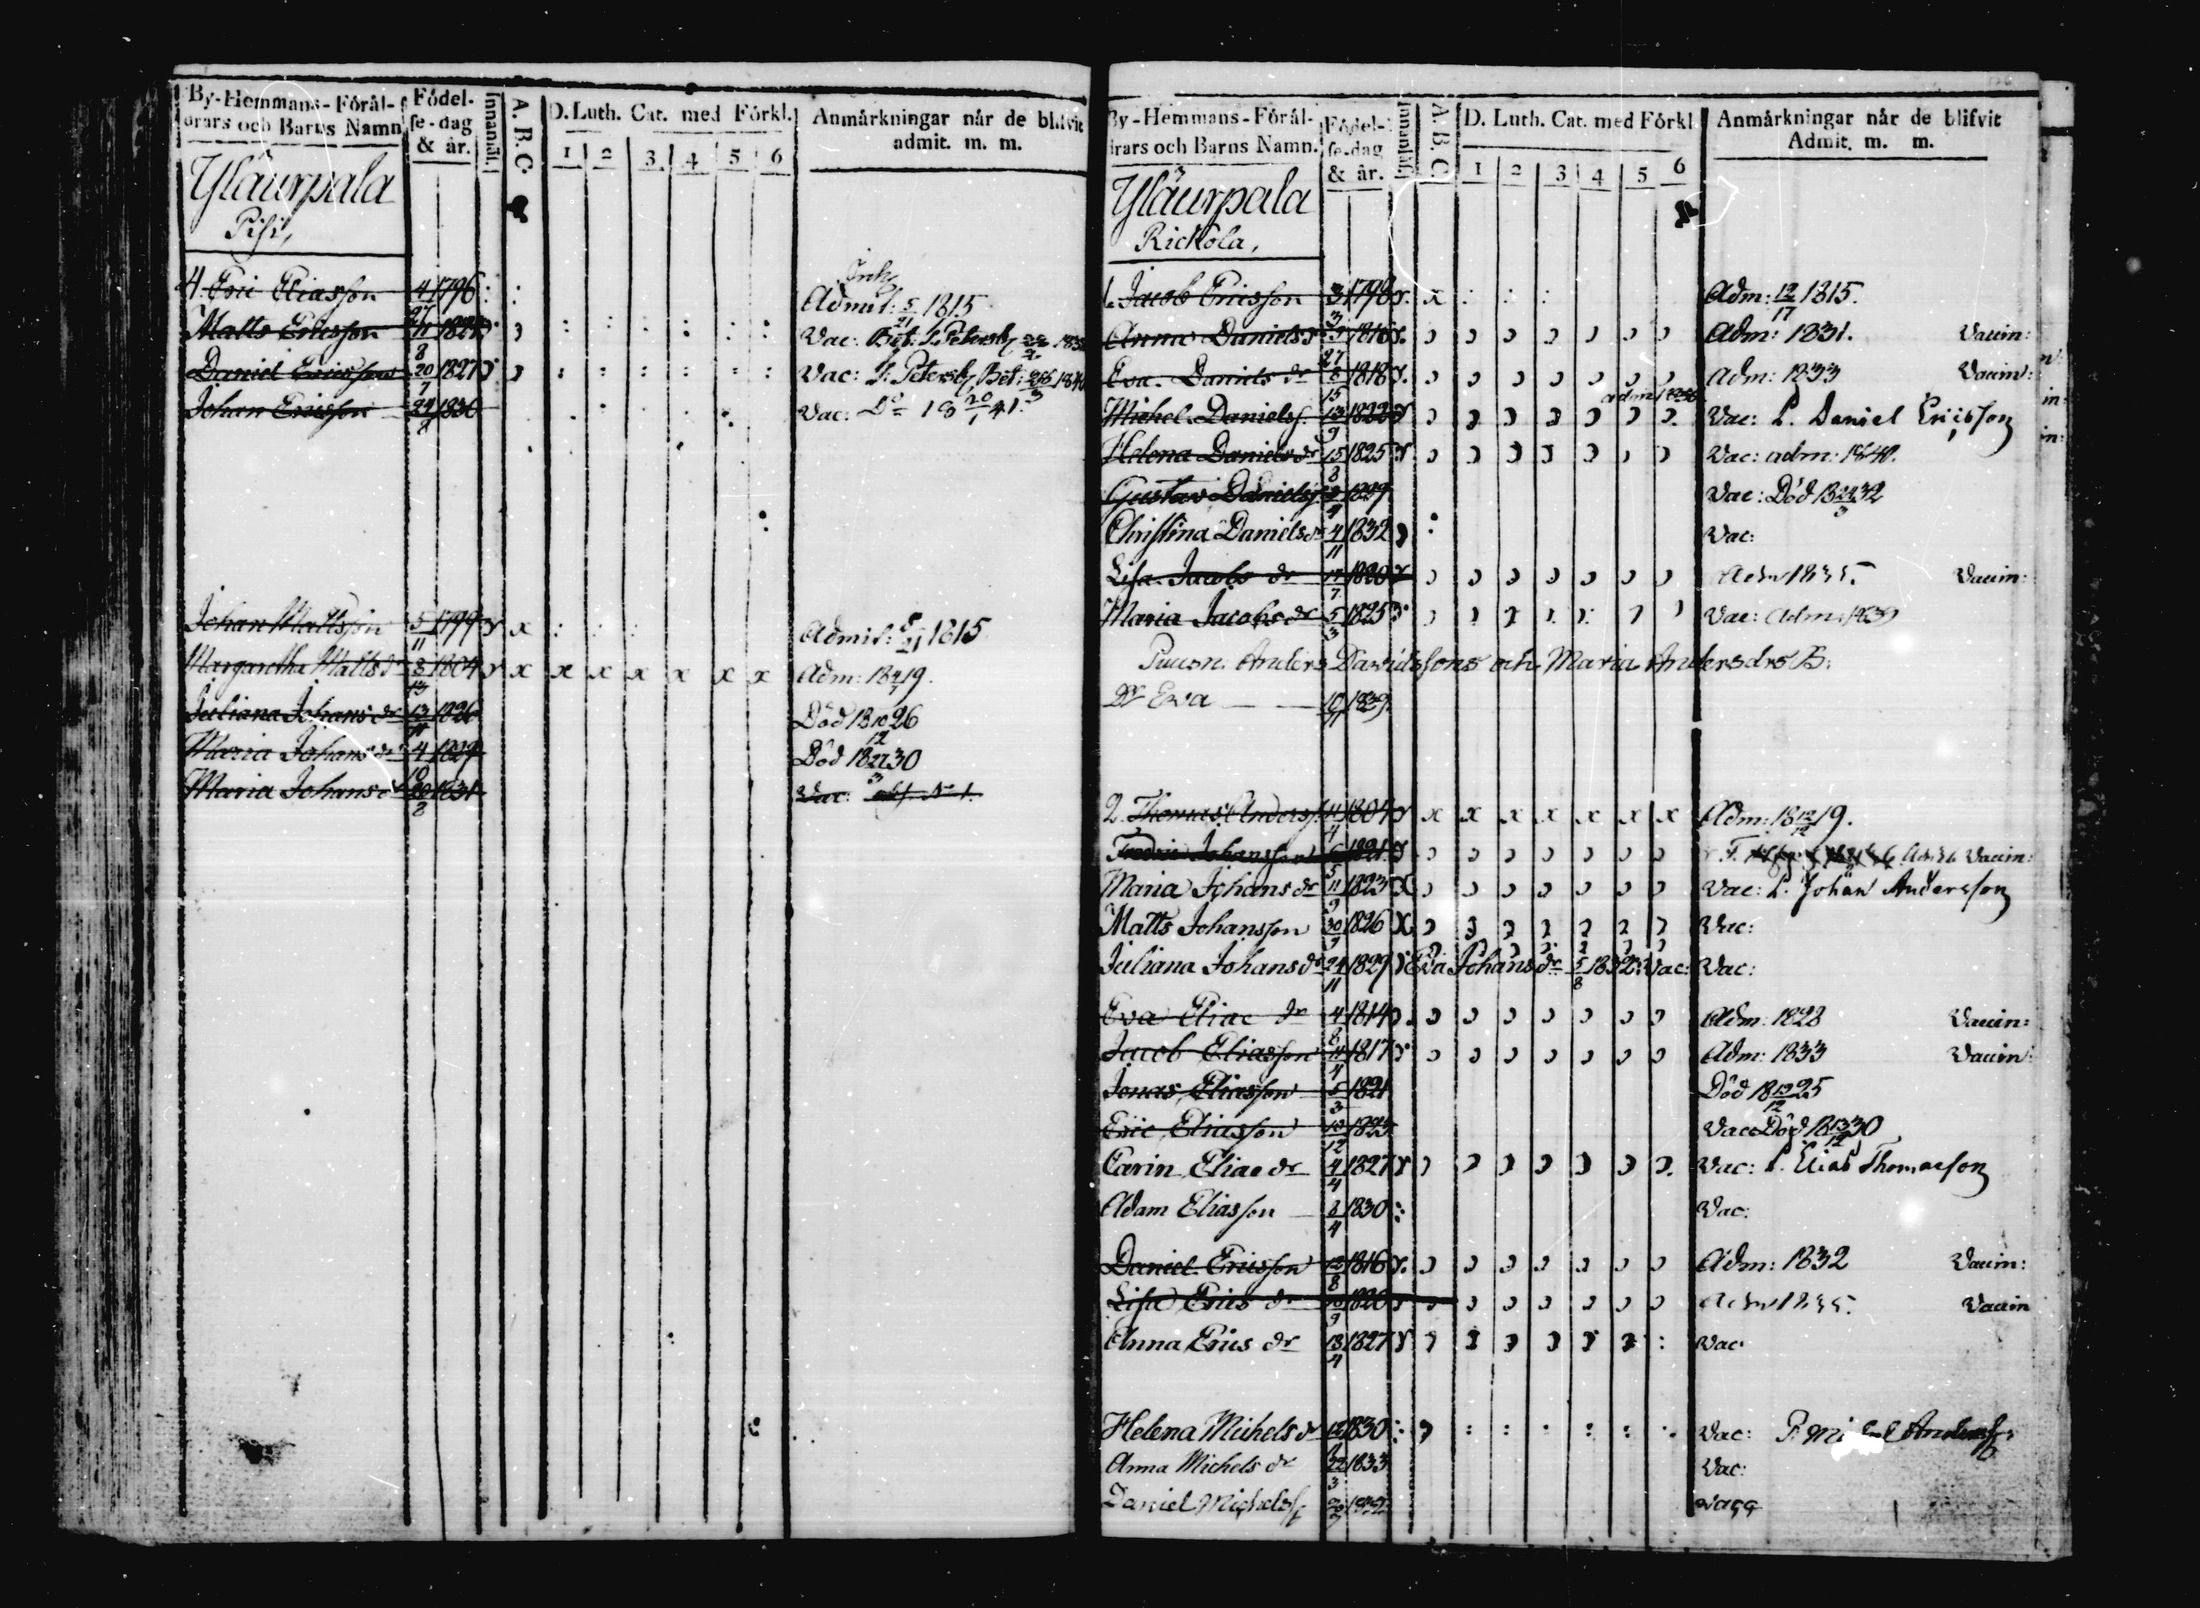 By-Hemmans-Föräl-
drars och Barns Namn
Födel-
se-dag
& år.
Innanläs.
A. B. C.
D. Luth. Cat. med Förkl.
1 2 3 4 5 6
Anmärkningar når de blifvit
admit. m. m.
Yläurpala
Pisi,
4. Eric Eliasson 4 1796 Admit: 5/21 1815
Matts Ericsson Vac: Bet: S. Petersb
Daniel Ericsson 20/7 1827 Vac: S: Petersb Bet:
Johan Ericsson 24/8 1830 Vac: Do 18 20/1 41.
Johan Mattsson 5/11 1799 x Admit: 5/21 1815
Margaretha Mattsdr 8 1804 x x x x x x x Adm: 1819.
Juliana Johansdr 13/11 1826 Död 18 10/12 26
Maria Johansdr 4 1829 Död 18 27/3 30
Maria Johansdr 20/8 1831 Vac: No 1.
By-Hemmans-Förål-
drars och Barns Namn.
Födel-
se-dag
& år.
Innanläs.
A. B. C.
D. Luth. Cat. med Förkl
1 2 3 4 5 6
Anmårkningar når de blifvit
Admit. m. m.
Yläurpala
Rickola,
1. Jacob Ericsson 3/3 1798 x Adm: 12/17 1815.
Anna Danielsdr 1816 Adm: 1831. Vaccin:
Eva Daniels dr 8/15 1818 Adm: 1833 Vaccin:
Michel Danielss. 13/9 1822 Vac: P. Daniel Ericsson
Helena Daniels dr 15/8 1825 Vac: adm: 1840.
Gustav Danielss 1829 Vac: Död 18 24/3 32
Christina Daniels dr 4/11 1832 Vac:
Lisa Jacobs dr 17/7 1820 Adm 1835. Vaccin:
Maria Jacobs dr 5/3 1825 Vac: Adm: 1839
Anders Davidssons och Maria Andersdrs B:
Dr Eva 10/11 1839.
2. Thomas Anderss. 1804 x x x x x x x Adm: 18 12/12 19.
Fredric Johansson 6/5 1821 Vaccin:
Maria Johans dr 11/9 1823 Vac: P. Johan Andersson
Matts Johansson 30/9 1826 Vac:
Juliana Johans dr 24/11 1829 Eva Johans dr 5/8 1832: Vac: Vac:
Eva Elias dr 4/8 1814 Adm: 1828 Vaccin:
Jacob Eliasson 1817 Adm: 1833 Vaccin:
Jonas Eliasson 5/3 1821 Död 18 12/12 25
Eric Eliasson 10/12 1823 Vac: Död 18 13/12 30
Carin Elias dr 4/4 1827 Vac: P. Elias Thomasson
Adam Eliasson 8/4 1830 Vac:
Daniel Ericsson 12/8 1816 Adm: 1832 Vaccin:
Lisa Erics dr 10/9 1820 Adm 1835. Vaccin
Anna Erics dr 13/4 1827 Vac
Helena Michels dr 12 1830 Vac: P. Anderss:
Anna Michels dr 22/3 1833 Vac:
Daniel Michelss